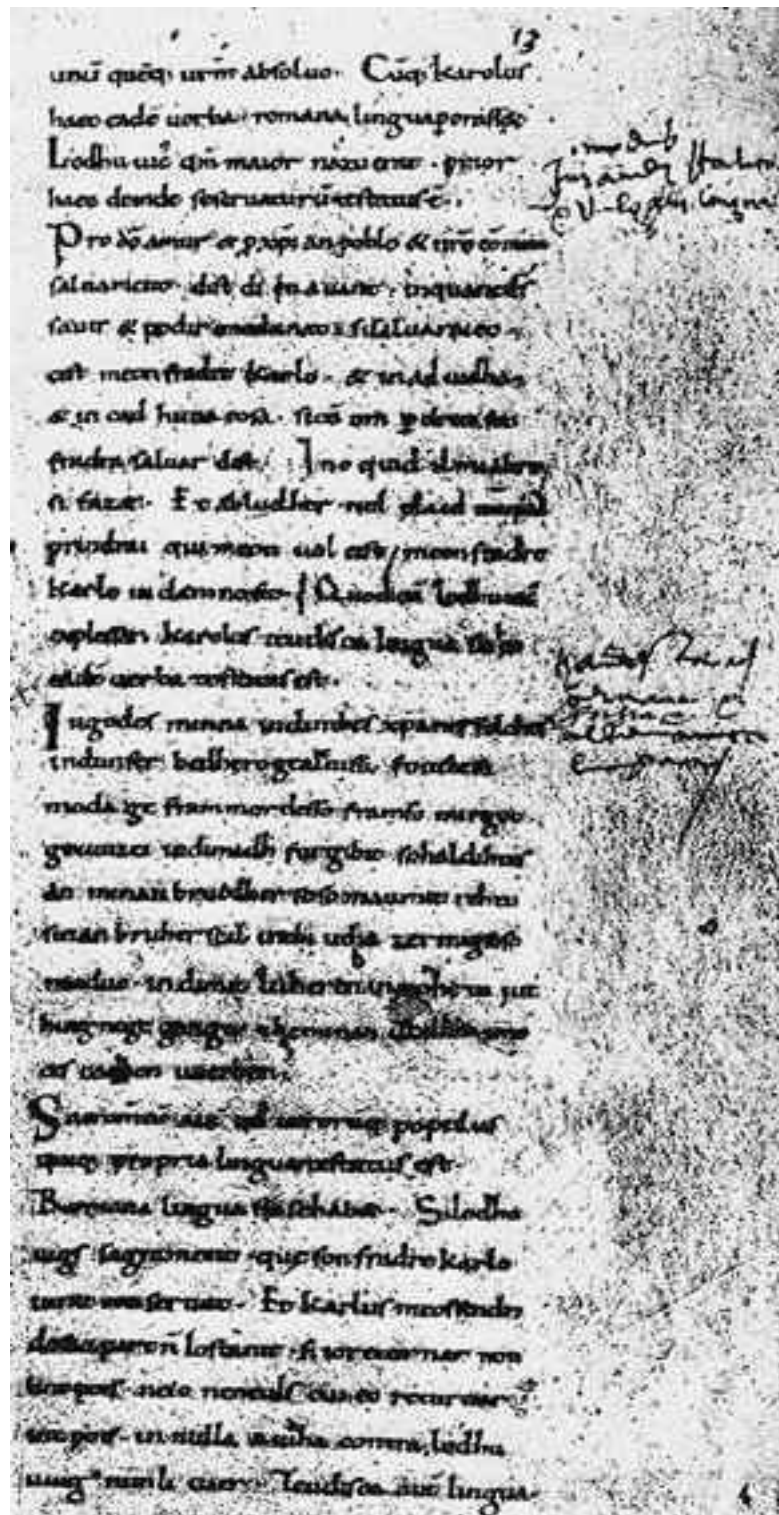 13
unū quēq; urm̄ absoluo. Cūq; karolus
haec eadē uerba romana lingua
Lodhuuic qm̄ maior natu erat. prior
haec deinde seseruaturū testatus ē.
Pro dō amur & p xp̄ian poblo & nr̄o cōmun
saluament. dist di in auant. inquantds
sauir & podir medunat. sisaluaraieo.
cist meon fradre karlo. & in ad iudha
& in cad huna cosa. sicū om p dreit son
fradra saluar dist. Ino quid il mialtre
si faz&. Et abludher nul plaid nūquā
prindrai qui meon uol cist meon fradre
karle in damno sit. Quodcū lodhuuic
explesset. karolus teudisca lingua sic hec
eadē uerba testatus est.
Ingodes minna indinthes xp̄anes folches
indunser bedhero gealtnissi. fonthese
moda ge frammordesso framso mirgot
geuuizci indimadh furgibit sohaldihtes
an minan bruodher soso man mit rehtu
sinan bruher scal inthi utha zermigsoso
maduo. indimit luheren in nohein iut
hing nege gango. zheminan uuillon imo
ce scadhen uuerhen.
Sacramtū autē qd utrorumq; populus
quiq; propria lingua testatus est.
Romana lingua sic sehab&. Silodhu
uigs sagrament. que son fradre karlo
iurat conseruat. Et karlus meossendra
desuo partn̄ lostanit. si ioreturnar non
lint pois. neio neneuls cui eo returnar
int pois. in nulla aiudha contra lodhu
uuig nunli iuer. Teudisca autē lingua.